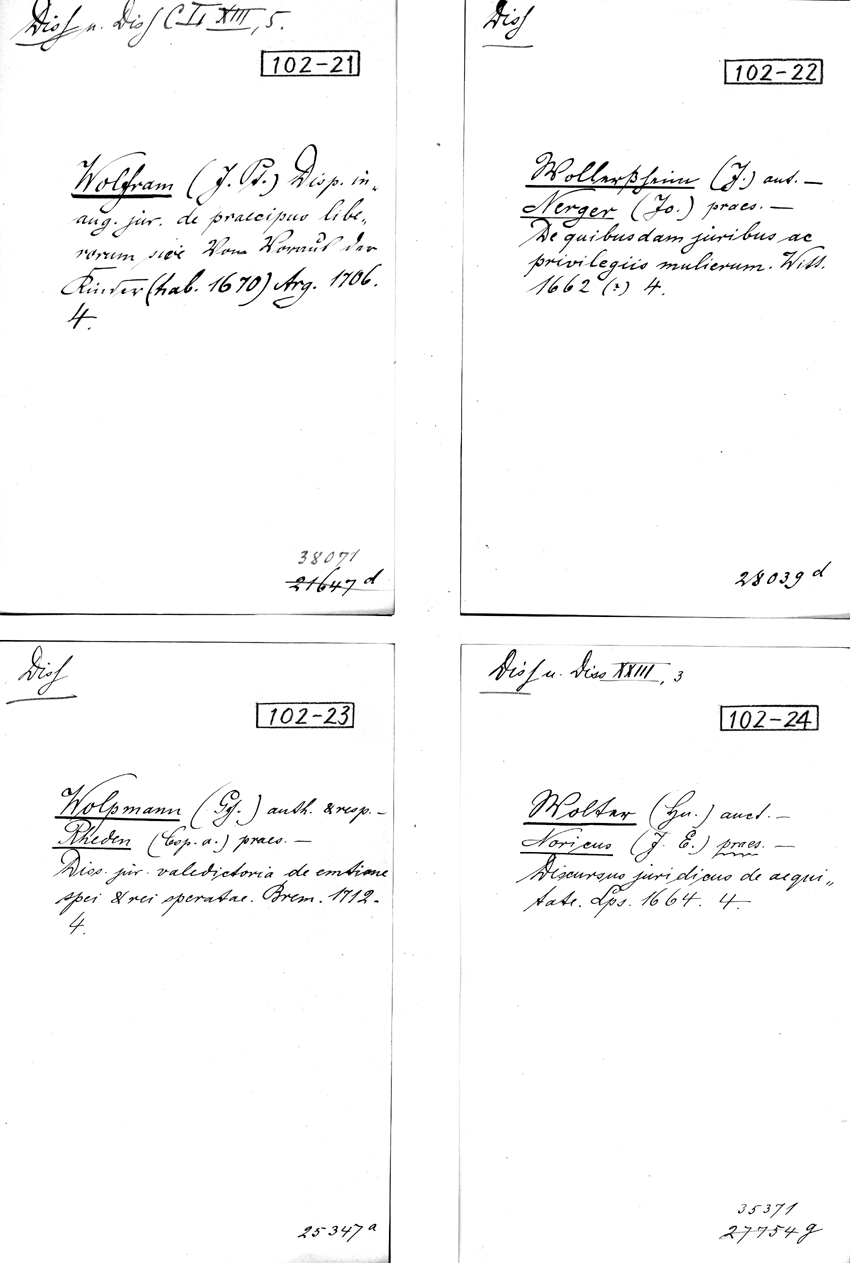 Diss u. Diss C I, XIII, 5.
102-21
Wolfram (J. Pt.) Disp. in„
aug. jur. de praecipuo libe„
rorum sive Vom Voraus der
Kinder (hab. 1670) Arg. 1706.
4.
38071
21647 d
Diss
102-22
Wollerßheim (J.) aut. —
Nerger (Jo.) praes. —
De quibusdam juribus ac
privilegiis mulierum. Witt.
1662 (?) 4.
28039 d
Diss
102-23
Wolpmann (Gf.) auth. & resp. —
Rheden (Csp. a.) praes. —
Diss. jur. valedictoria de emtione
spei & rei speratae. Brem. 1712.
4.
25347 a
Diss u. Diss XXIII, 3
102-24
Wolter (Hn.) auct. —
Noricus (J. E.) praes. —
Discursus juridicus de aequi„
tate. Lps. 1664. 4.
35371
27754 g